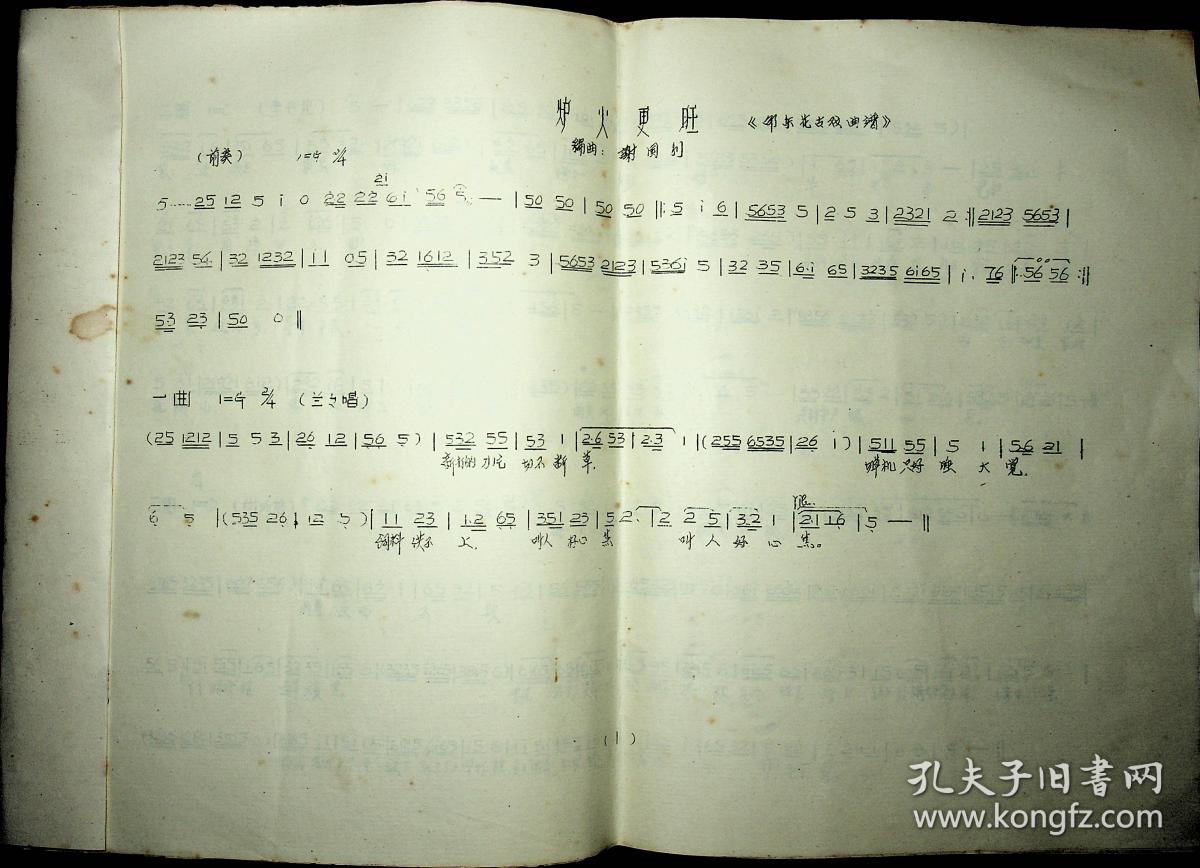 炉火更旺 《邵东花古戏曲谱》
编曲：谢国利
（前奏） 1=G 2/4
2i
5…… 25 12 5 i 0 22 22 6i 56 5 — | 50 50 | 50 50 ‖: 5 i 6 | 5653 5 | 2 5 3 | 2321 2 :‖ 2123 5653 |
2123 56 | 32 1232 | 11 05 | 32 1612 | 352 3 | 5653 2123 | 536i 5 | 32 35 | 6·i 65 | 3235 6i65 | i· 76 ‖: 56 56 :‖
53 23 | 50 0 ‖
一曲 1=G 2/4 （兰兰唱）
(25 1212 | 5 5 3 | 26 12 | 56 5) | 532 55 | 53 1 | 2·6 53 | 2·3 1 | (255 6535 | 26 1) | 511 55 | 5 1 | 56 21 |
切不断草， 只好 大觉。
6 5 | (535 26 | 12 5) | 11 23 | 1·2 65 | 351 23 | 5 2· | 2 2 5 | 32 1 | 21 16 | 5 — ‖
饲料供不上， 叫人好心焦 叫人好心焦。
(1)
孔夫子旧书网
www.kongfz.com